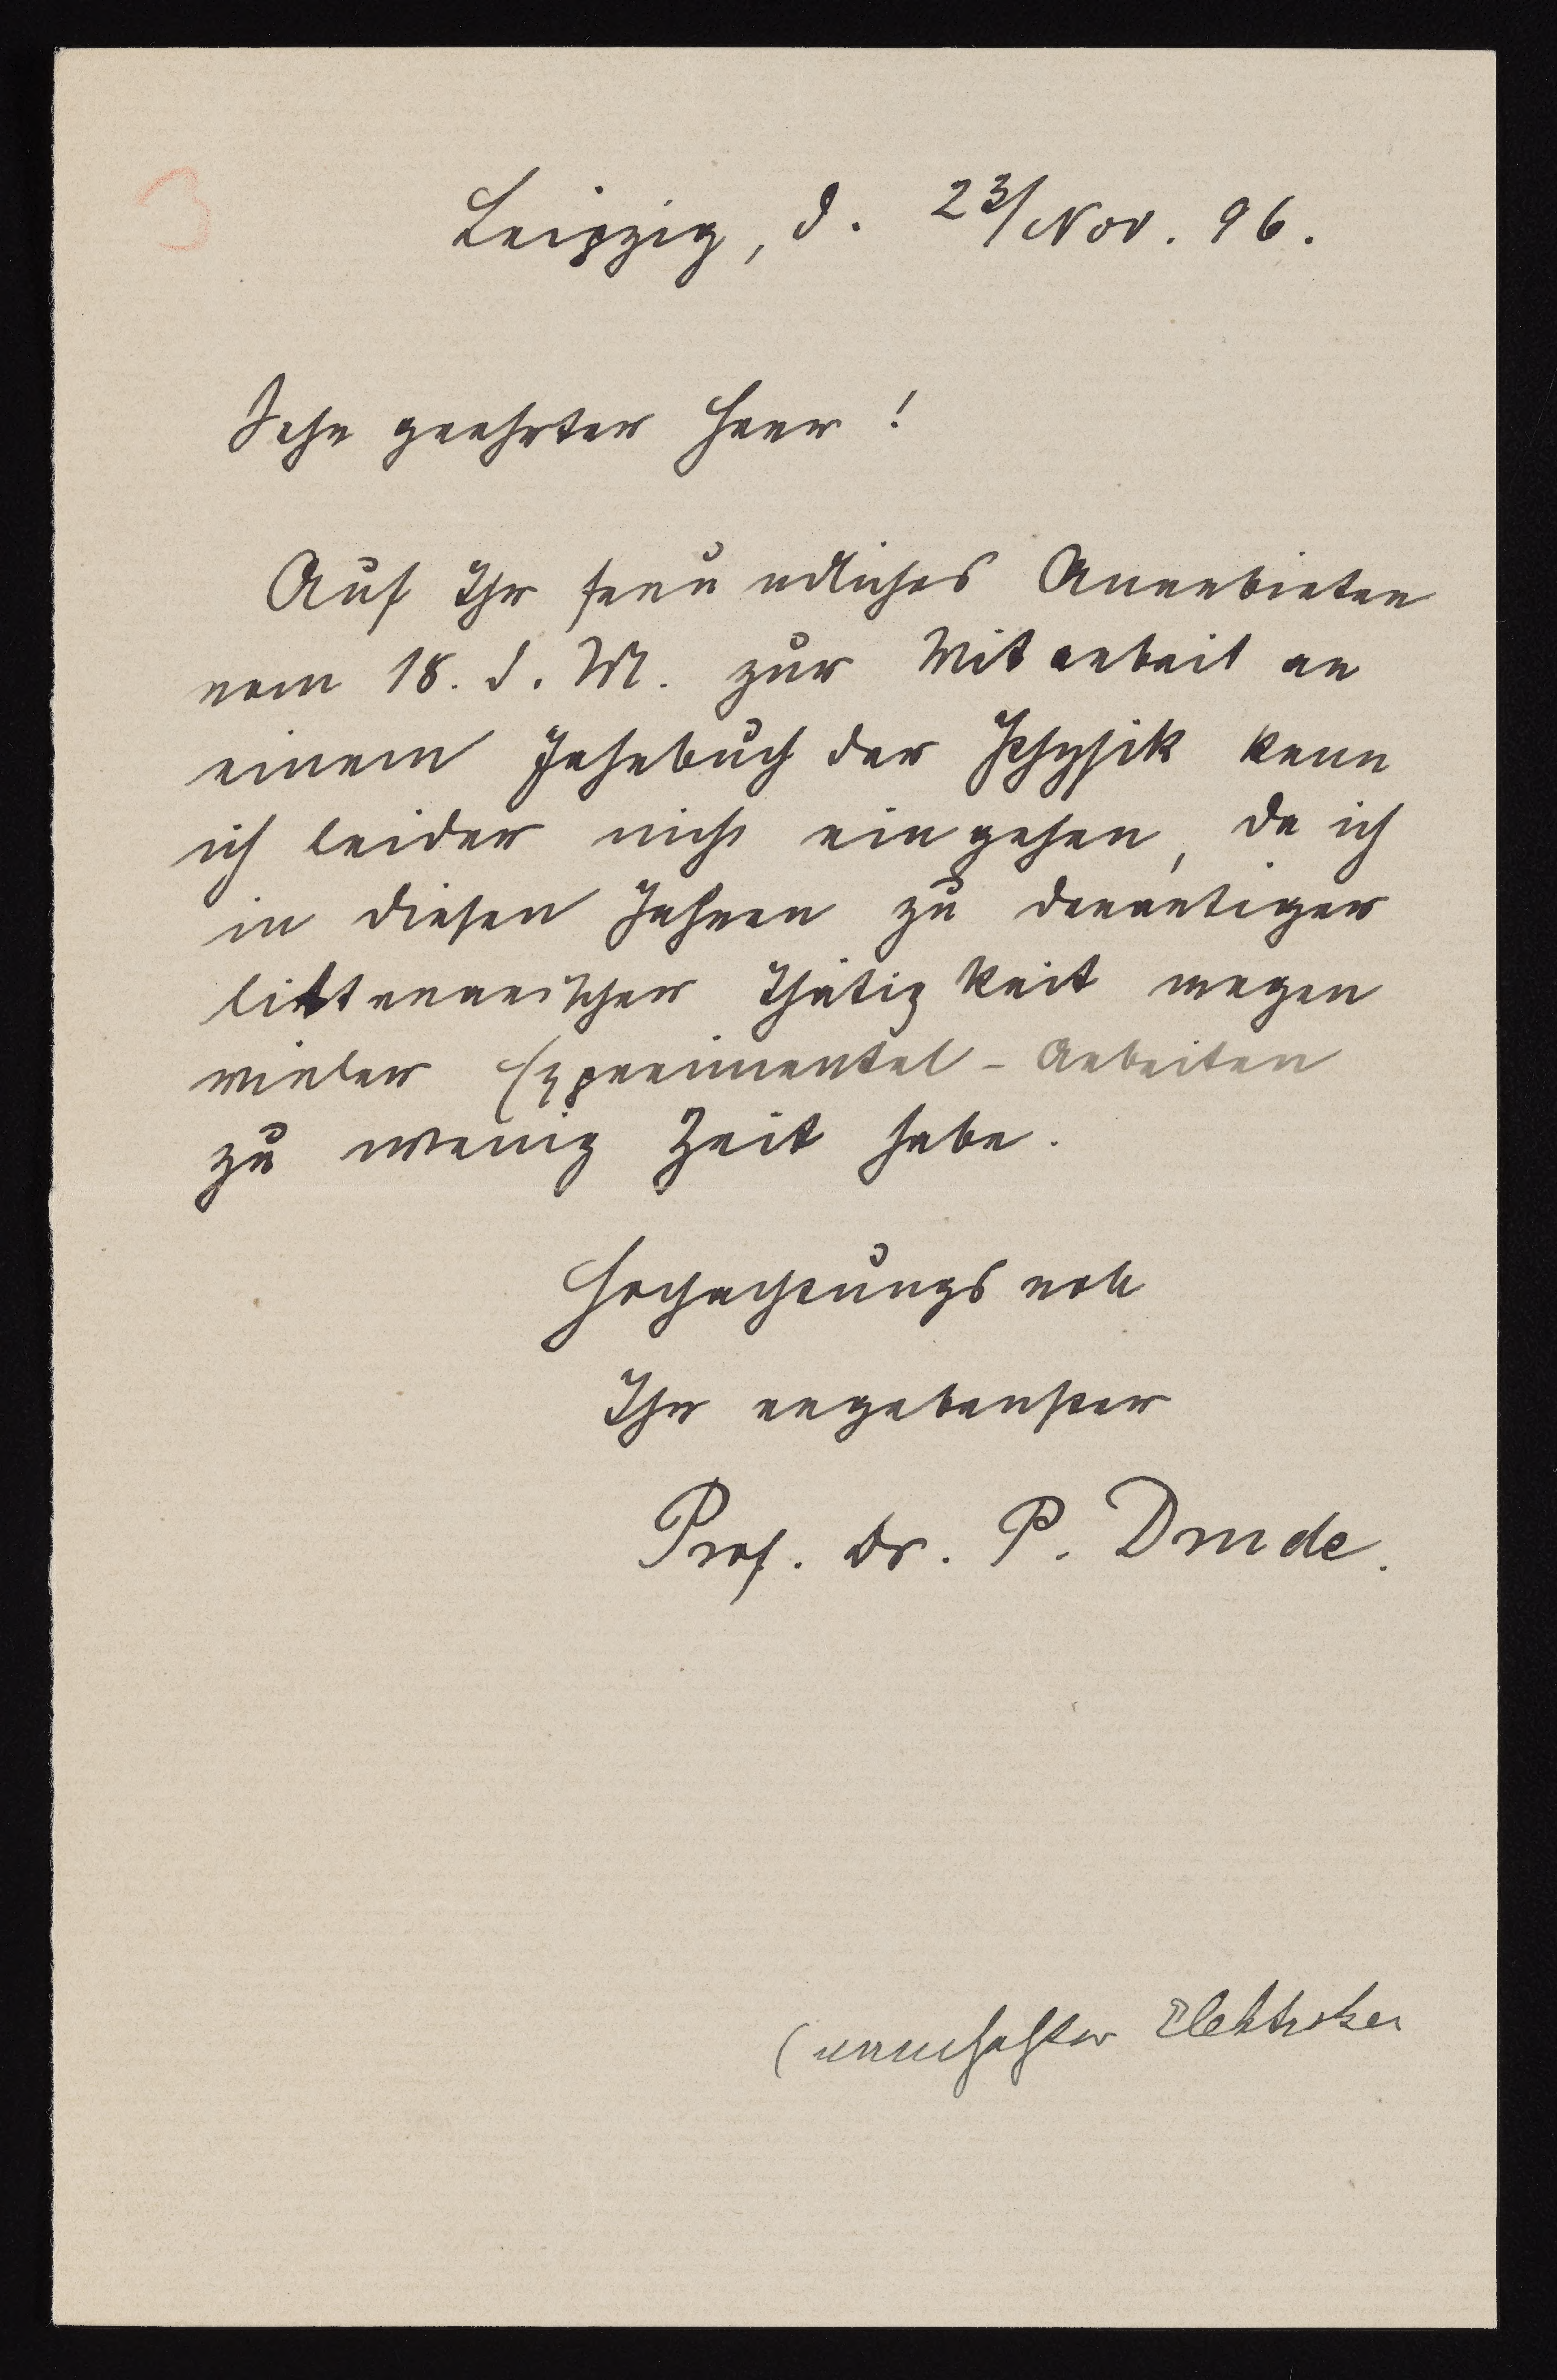 3
Leipzig, d. 23/Nov. 96.
Sehr geehrter Herr!
Auf Ihr freundliches Anerbieten
vom 18. d. M. zur Mitarbeit an
einem Jahrbuch der Physik kann
ich leider nicht eingehen, da ich
in diesen Jahren zu derartiger
litterarischer Thätigkeit wegen
vieler Experimental-Arbeiten
zu wenig Zeit habe.
Hochachtungsvoll
Ihr ergebenster
Prof. Dr. P. Drude.
(namhafter Elektriker